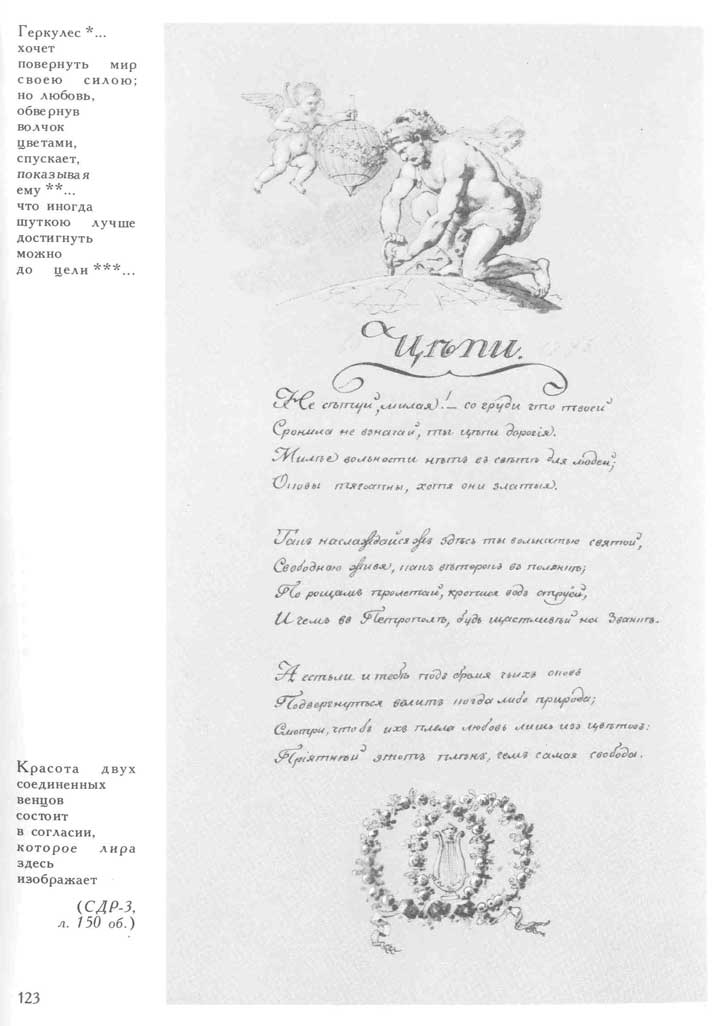 Геркулес *...
хочет
повернуть мир
своею силою;
но любовь,
обвернув
волчок
цветами,
спускает,
показывая
ему **...
что иногда
шуткою лучше
достигнуть
можно
до цели ***...
Цѣпи.
Не сѣтуй, милая! — со груди что твоей
Сронила не взначай, ты цѣпи дорогія.
Милѣе вольности нѣтъ въ свѣтѣ для людей;
Оковы тягостны, хотя они златыя.
Такъ наслаждайся жъ здѣсь ты вольностью святой,
Свободною живя, какъ вѣтерокъ въ полянкѣ;
По рощамъ пролетай, кропися водъ струей,
И чемъ въ Петрополѣ, будь щастливѣй на Званкѣ.
А естьли и тебѣ подъ бремя чьихъ оковъ
Подвергнуться велитъ когда либо природа;
Смотри, чтобъ ихъ плела любовь лишь изъ цвѣтовъ:
Пріятнѣй этотъ плѣнъ, чемъ самая свобода.
Красота двух
соединенных
венцов
состоит
в согласии,
которое лира
здесь
изображает
(СДР-3,
л. 150 об.)
123